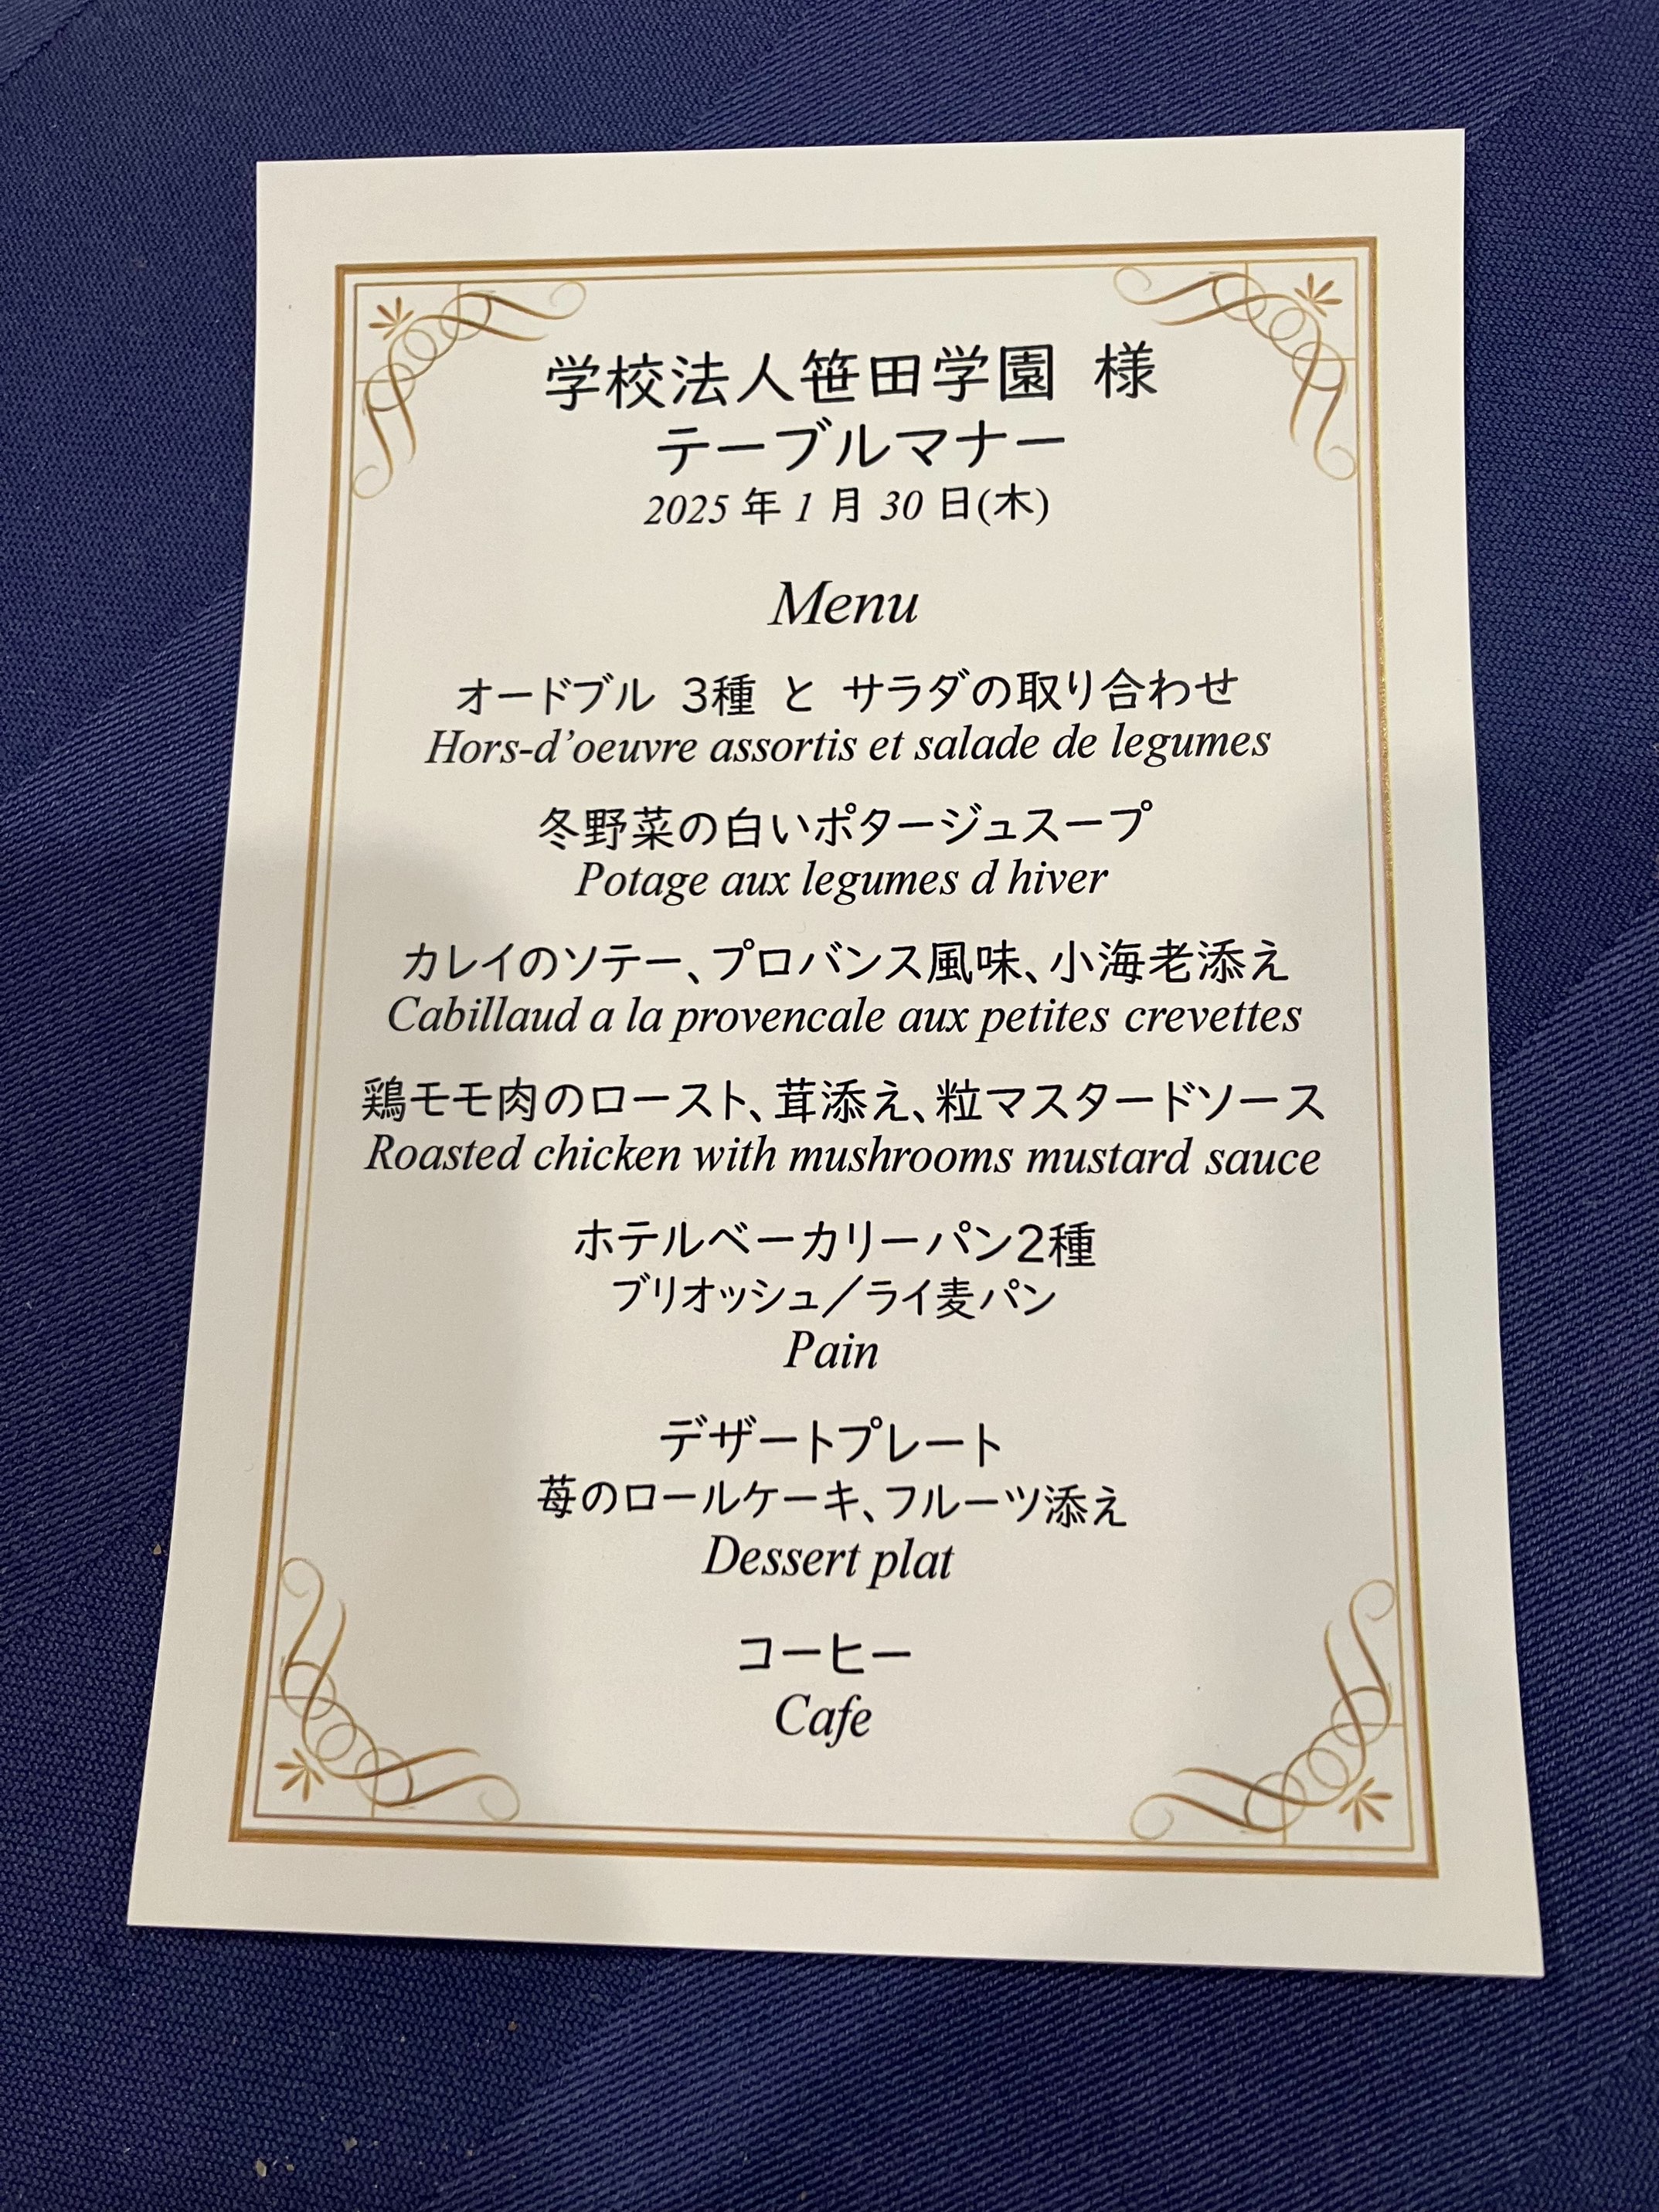 学校法人笹田学園 様
テーブルマナー
2025 年 1 月 30 日(木)
Menu
オードブル 3種 と サラダの取り合わせ
Hors-d’oeuvre assortis et salade de legumes
冬野菜の白いポタージュスープ
Potage aux legumes d hiver
カレイのソテー、プロバンス風味、小海老添え
Cabillaud a la provencale aux petites crevettes
鶏モモ肉のロースト、茸添え、粒マスタードソース
Roasted chicken with mushrooms mustard sauce
ホテルベーカリーパン2種
ブリオッシュ／ライ麦パン
Pain
デザートプレート
苺のロールケーキ、フルーツ添え
Dessert plat
コーヒー
Cafe